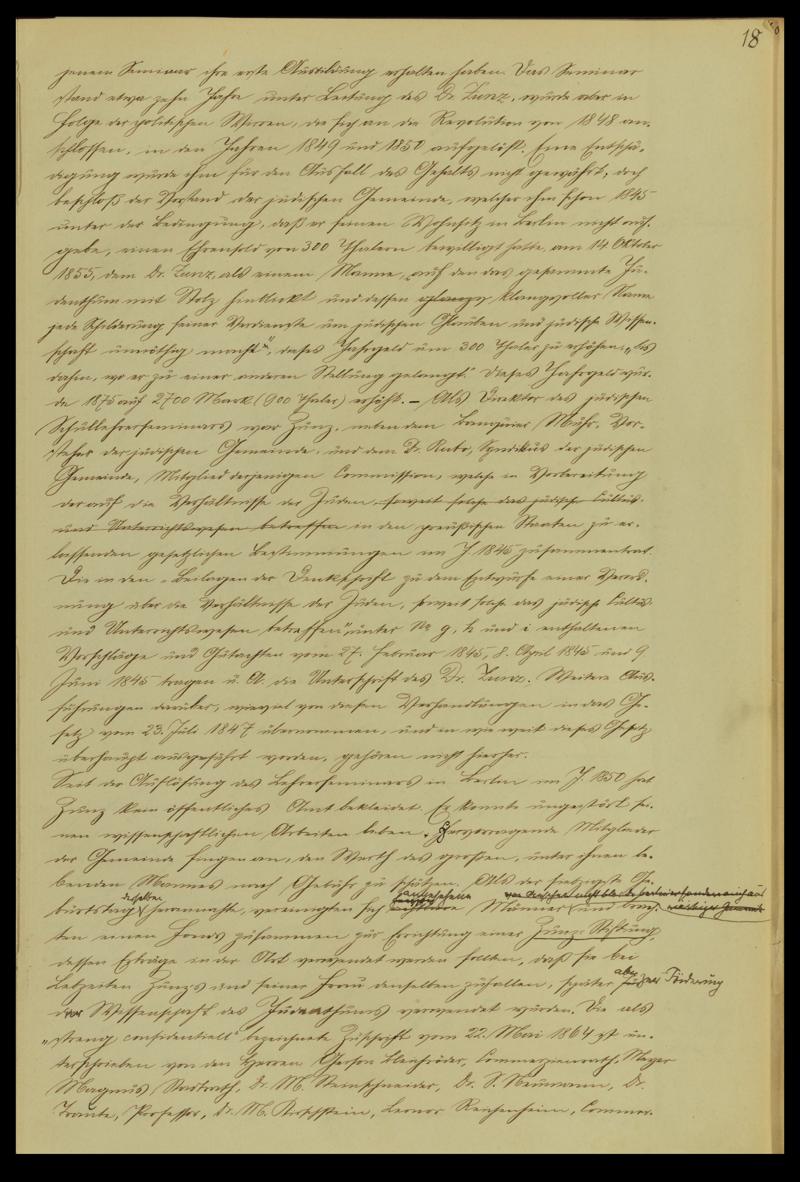 18
jenem Seminar ihre erste Ausbildung erhalten haben. Das Seminar
stand etwa zehn Jahre unter Leitung des Dr. Zunz, wurde aber in
Folge der politischen Wirren, die sich an die Revolution von 1848 an-
schlossen, in den Jahren 1849 und 1850 aufgelöst. Eine Entschä-
digung wurde ihm für den Ausfall des Gehalts nicht gewährt, doch
beschloß der Vorstand der jüdischen Gemeinde, welcher ihm schon 1845
unter der Bedingung, daß er seinen Wohnsitz in Berlin nicht auf-
gebe, einen Ehrensold von 300 Thalern bewilligt hatte, am 14 Oktober
1855, dem Dr. Zunz, als einem Manne, „auf den das gesammte Ju-
denthum mit Stolz hinblickt und dessen klangvoller Name
jede Schilderung seiner Verdienste um jüdischen Glauben und jüdische Wissen-
schaft unnöthig macht", dieses Jahrgeld um 300 Thaler zu erhöhen, „bis
dahin, wo er zu einer anderen Stellung gelangt." Dieses Jahrgeld wur-
de 1875 auf 2700 Mark (900 Thaler) erhöht. – Als Direktor des jüdischen
Schullehrerseminars war Zunz, neben dem Banquier Muhr, Vor-
steher der jüdischen Gemeinde, und dem Dr. Rubo, Syndikus der jüdischen
Gemeinde, Mitglied derjenigen Commission, welche in Vorbereitung
der auf die Verhältnisse der Juden, soweit solche das jüdische Cultus-
und Unterrichtswesen betreffen in den preußischen Staaten zu er-
lassenden gesetzlichen Bestimmungen im J. 1845 zusammentrat.
Die in den „Beilagen der Denkschrift zu dem Entwurfe einer Verord-
nung über die Verhältnisse der Juden, soweit solche das jüdische Cultus-
und Unterrichtswesen betreffen", unter No g, h und i enthaltenen
Vorschläge und Gutachten vom 27. Februar 1845, 8. April 1845 und 9
Juni 1845 tragen u. A. die Unterschrift des Dr. Zunz. Weitere Aus-
führungen darüber, wieviel von diesen Verhandlungen in das Ge-
setz vom 23. Juli 1847 übernommen, und in wie weit dieses Gesetz
überhaupt ausgeführt worden, gehören nicht hierher.
Seit der Auflösung des Lehrerseminars in Berlin im J. 1850 hat
Zunz kein öffentliches Amt bekleidet. Er konnte ungestört sei-
nen wissenschaftlichen Arbeiten leben. Hervorragende Mitglieder
der Gemeinde fingen an, den Werth des großen, unter ihnen le-
benden Mannes nach Gebühr zu schätzen. Als der siebzigste Ge-
burtstag desselben herannahte, vereinigten sich angesehene Männer und
ten einen Fonds zusammen zur Errichtung einer Zunz-Stiftung,
dessen Erträge in der Art verwendet werden sollten, daß sie bei
Lebzeiten Zunz's und seiner Frau denselben zufallen, später aber zur Förderung
der Wissenschaft des Judenthums verwendet würden. Die als
„streng confidentiell" bezeichnete Zuschrift vom 22. Mai 1864 ist un-
terschrieben von den Herren Gerson Bleichröder, Commerzienrath, Meyer
Magnus, Stadtrath, Dr. M. Steinschneider, Dr. S. Neumann, Dr.
Traube, Professor, Dr. M. Kirschstein, Leonor Reichenheim, Commer-